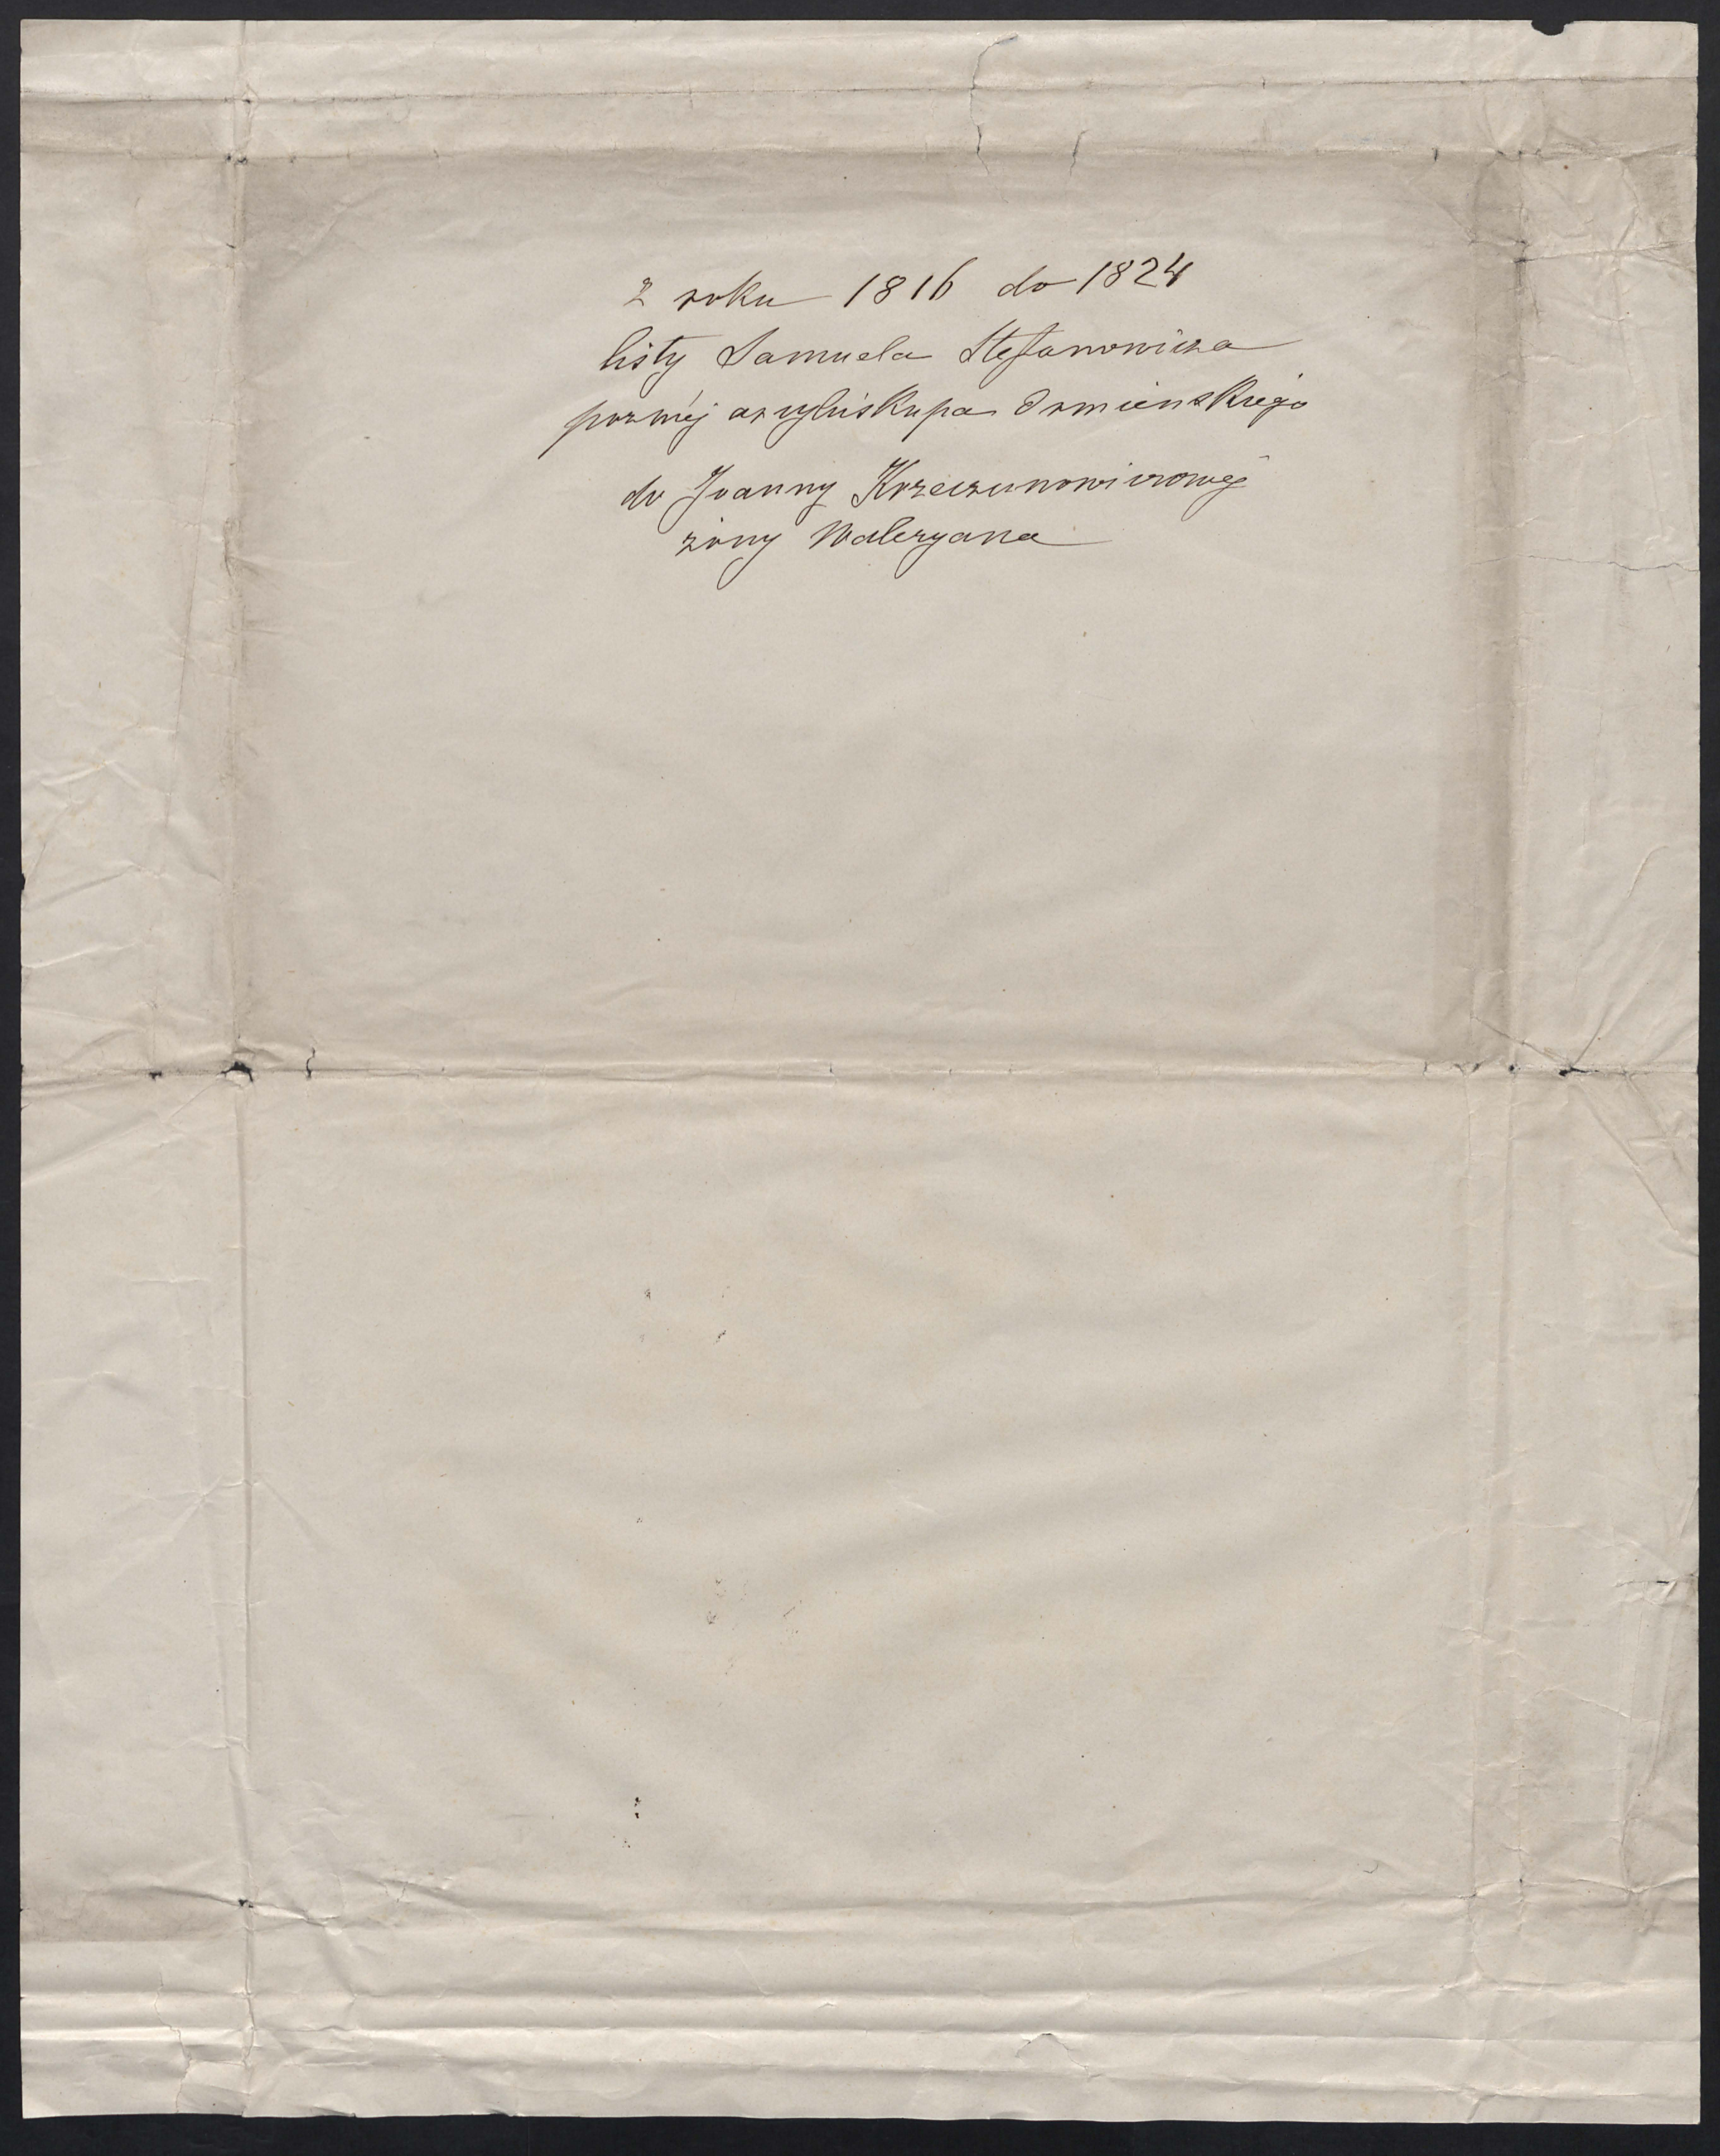 z roku 1816 do 1824
listy Samuela Stefanowicza
pozniej arcybiskupa Ormienskiego
do Joanny Krzeczunowiczowej
żony Waleryana